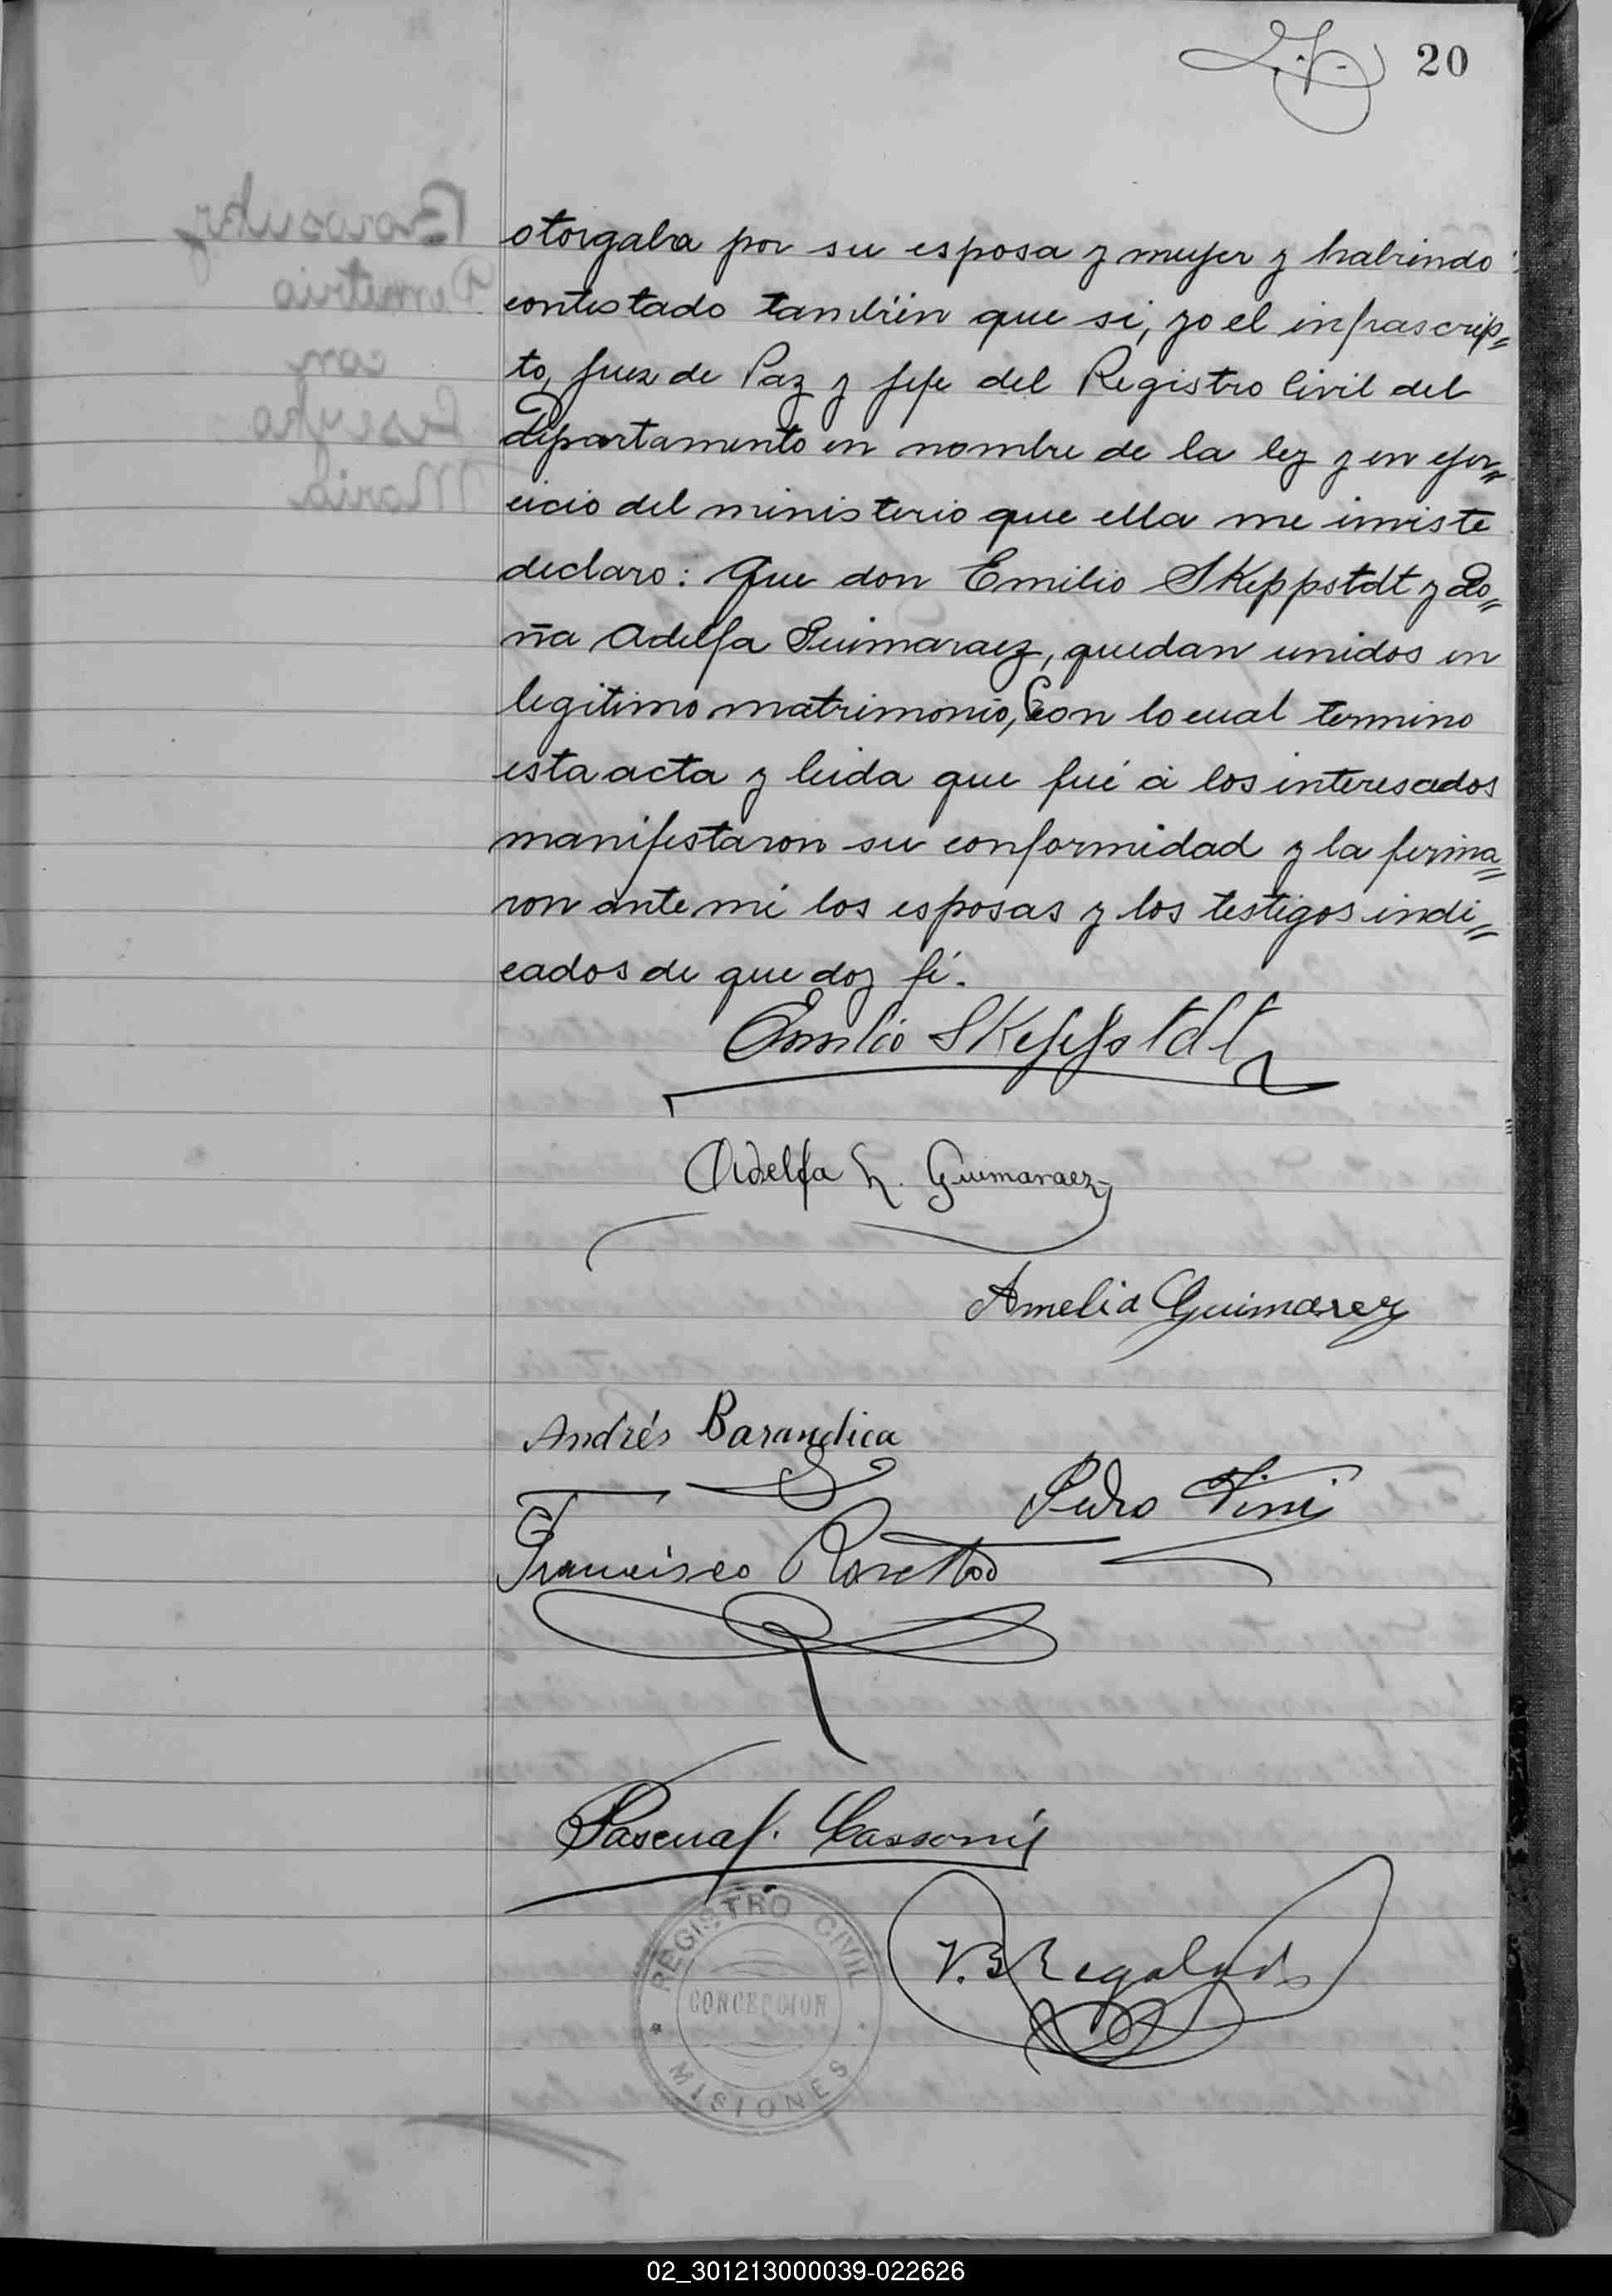 20
otorgaba por su esposa y mujer y habiendo
contestado tambien que si, yo el infrascrip=
to, Juez de Paz y Jefe del Registro Civil del
Departamento en nombre de la ley y en ejer=
cicio del ministerio que ella me inviste
declaro: Que don Emilio Skeppstdt y do=
ña Adelfa Guimaraez, quedan unidos en
legitimo matrimonio, Con lo cual termino
esta acta y leida que fué á los interesados
manifestaron su conformidad y la firma=
ron ante mi los esposas y los testigos indi=
cados de que doy fé.
Emilio Skeppstdt
Adelfa L. Guimaraez
Amelia Guimarez
Andrés Barandica
Pedro Vini
Francisco
Pascual Cassoni
REGISTRO CIVIL
CONCEPCION
MISIONES
V. B. Regalado
02_301213000039-022626